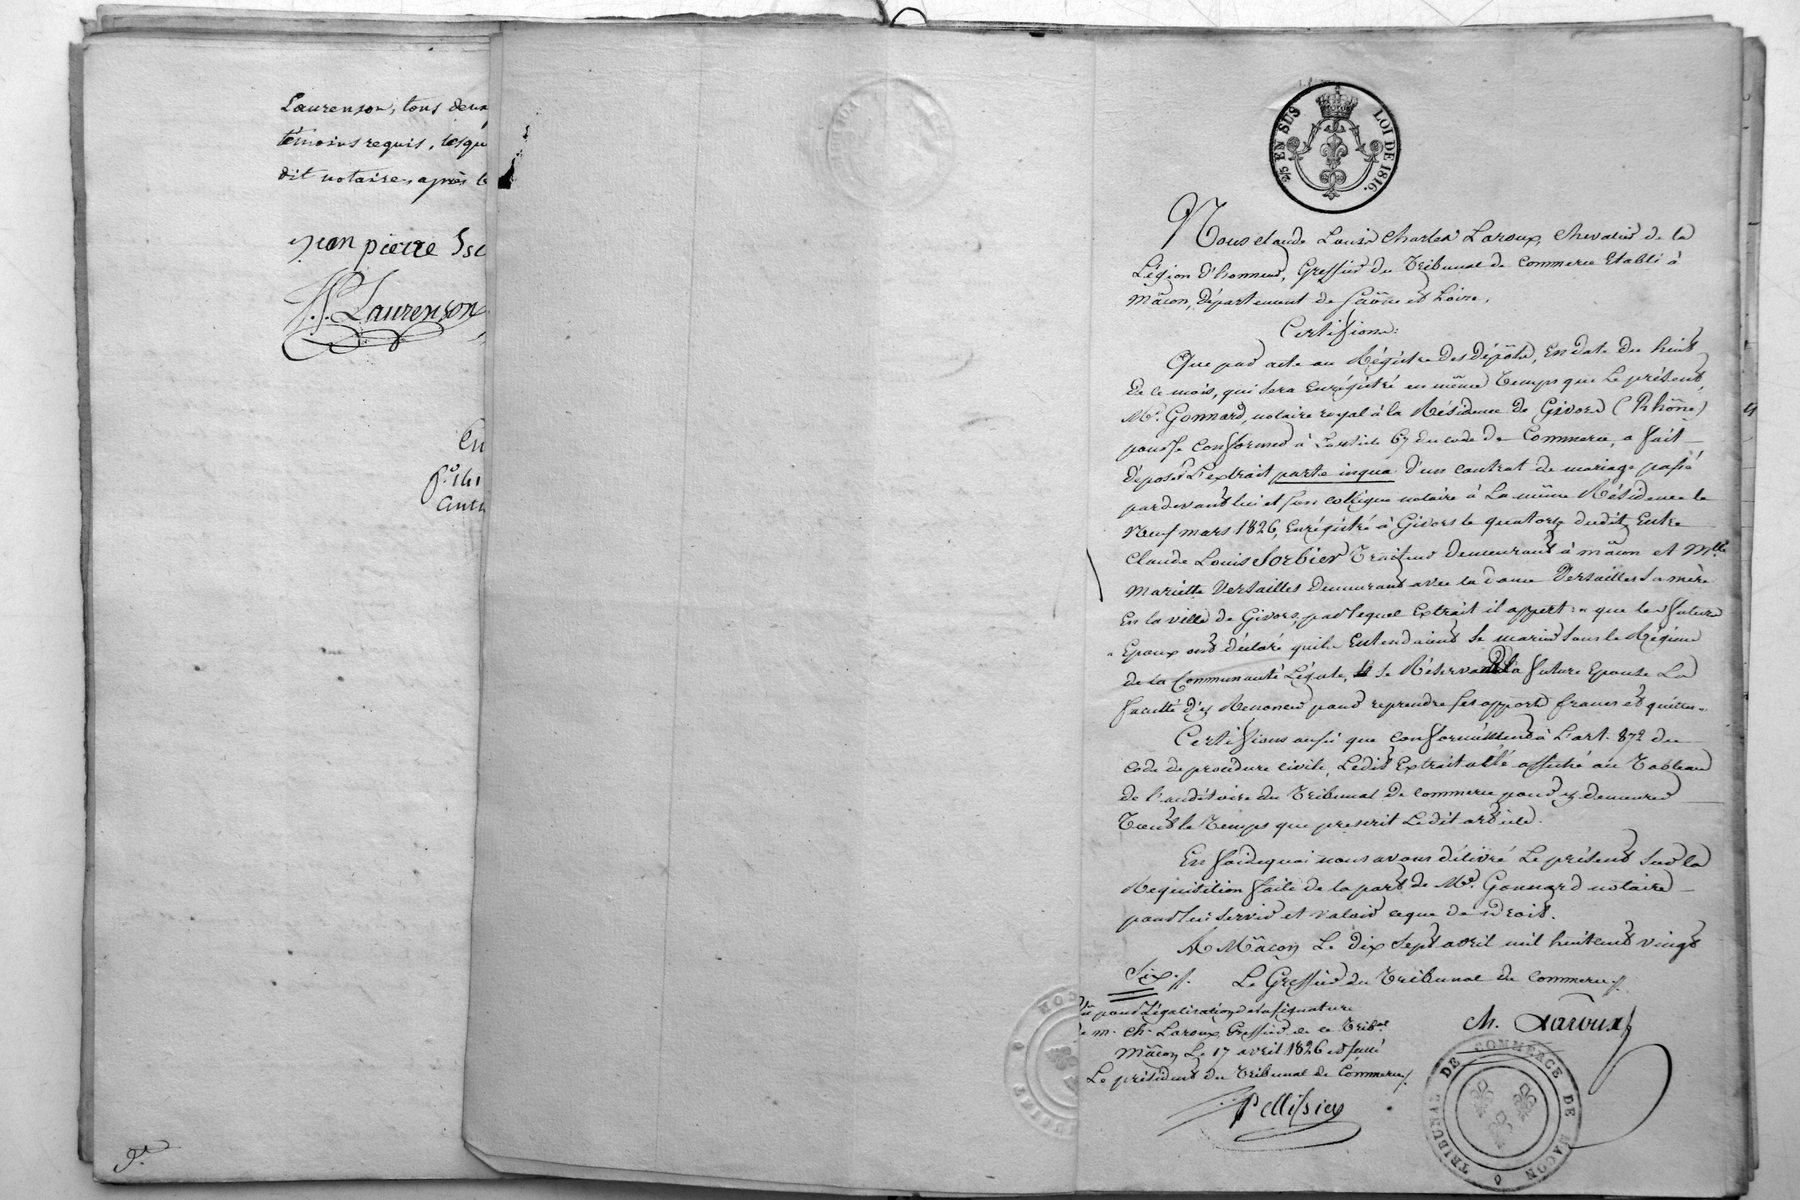 Laurenson, tous deux
témoins requis, lesqu
dit notaires, après le
jean pierre
Laurenson
En
25 EN SUS LOI DE 1816.
Nous Claude Louis Charles Laroux, Chevalier de la
Légion d'honneur, Greffier du Tribunal de Commerce Etabli à
Mâcon, Département de Saône et Loire,
Certifions:
Que par acte au Régistre des dépôts, En date du huit
de ce mois, qui sera Enrégistré en même Temps que Le présent,
Mr. Gonnard, notaire royal à la Résidence de Givors (Rhône)
pour se conformer à L'article 67 du code de Commerce, a fait
déposer L'extrait parte inqua d'un contrat de mariage passé
pardevant lui et son collègue notaire à La même Résidence le
Neuf mars 1826, Enrégistré à Givors le quatorze dudit, Entre
Claude Louis Sorbier Traiteur Demeurant à mâcon et Mlle
Mariette Versailles Demeurant avec la dame Versailles sa mère
En la ville de Givors, par lequel Extrait il appert: " que les future
" Epoux ont déclaré qu'ils Entendaient se marier sous le Régime
de la Communauté Légale, se Réservant la future Epouse La
faculté d'y Renoncer pour reprendre ses apports francs et quittes. "
Certifions aussi que conformément à L'art. 872 du
Code de procédure civile, Ledit Extrait a été affiché au Tableau
de l'auditoire du Tribunal de commerce pour y demeurer
Tout le Temps que prescrit Ledit article.
En foi de quoi nous avons délivré Le présent Sur la
Requisition faite de la part de Mr. Gonnard notaire
pour lui servir et valoir ce que de Droit.
A Mâcon Le dix Sept avril mil huit cent vingt
Six./. Le Greffier du Tribunal de Commerce./.
Vu pour Légalisation de la signature
de m. ch. Laroux, Greffier de ce Tribal
Mâcon Le 17 avril 1826
Le président du Tribunal de Commerce./.
ch. Laroux
Pellissier
TRIBUNAL DE COMMERCE DE MACON